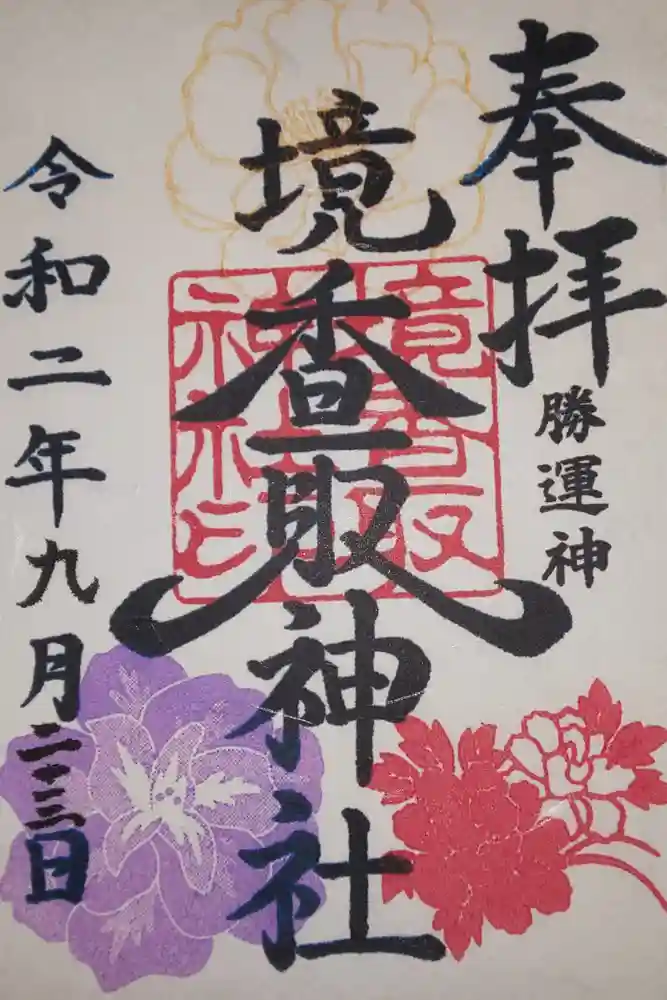 奉拝
勝運神
境香取神社
境香取神社神社印
令和二年九月二十三日